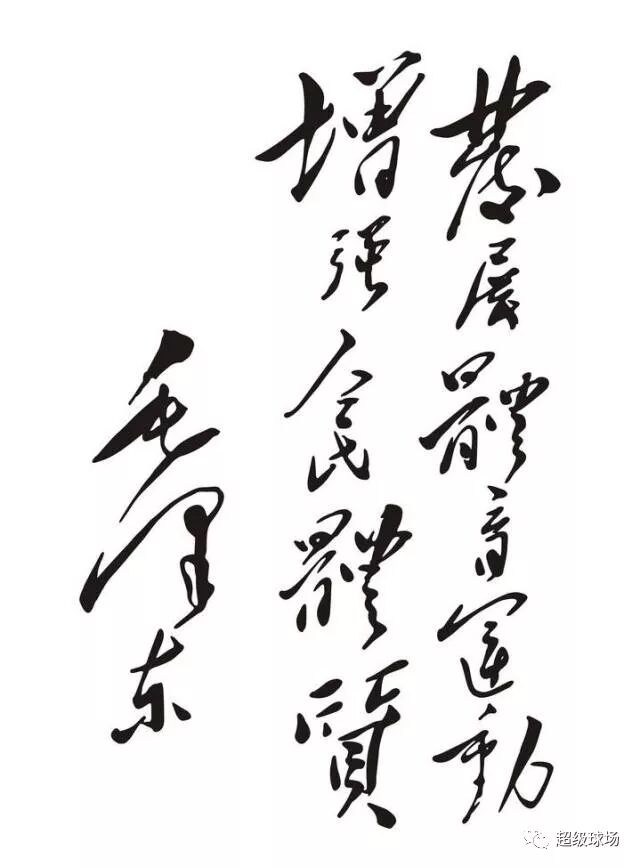 發展體育運動
增强人民體質
毛泽东
超级球场